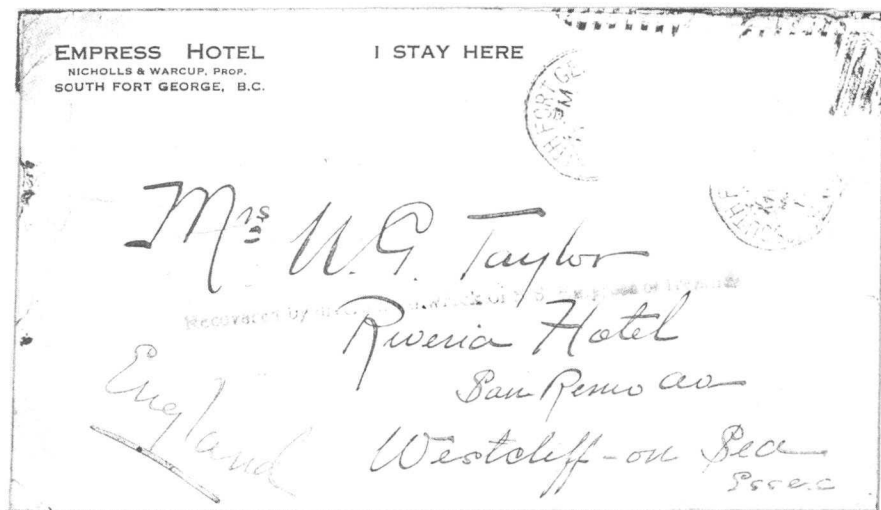 EMPRESS HOTEL
NICHOLLS & WARCUP, PROP.
SOUTH FORT GEORGE, B.C.
I STAY HERE
Mrs W. G. Taylor
Recovered by wreck of S.S. Empress of Ireland
Riveria Hotel
San Remo
Westcliff-on Sea
Essex
England